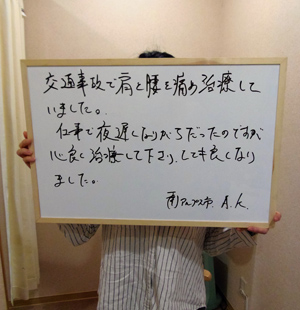 交通事故で肩と腰を痛め治療して
いました。
仕事で夜遅くなりがちだったのですが
心良く治療して下さり、とても良くなり
ました。
南アルプス市 A.K.